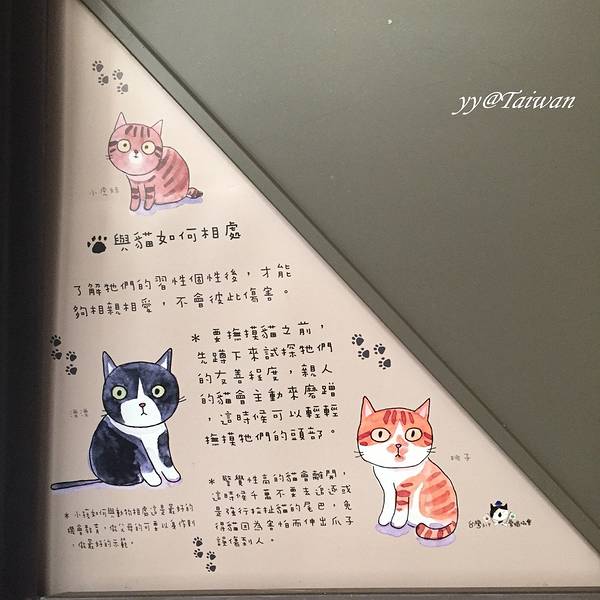 yy@Taiwan
小虎妞
與貓如何相處
了解牠們的習性個性後，才能
夠相親相愛，不會彼此傷害。
＊要撫摸貓之前，
先蹲下來試探牠們
的友善程度，親人
的貓會主動來磨蹭
，這時候可以輕輕
撫摸牠們的頭部。
桃子
＊警覺性高的貓會離開，
這時候千萬不要去追逐或
是強行拉扯貓的尾巴，免
得貓因為害怕而伸出爪子
謹傷到人。
＊小孩如何與動物相處這是最好的
機會教育，做父母的可要以身作則
，做最好的示範。